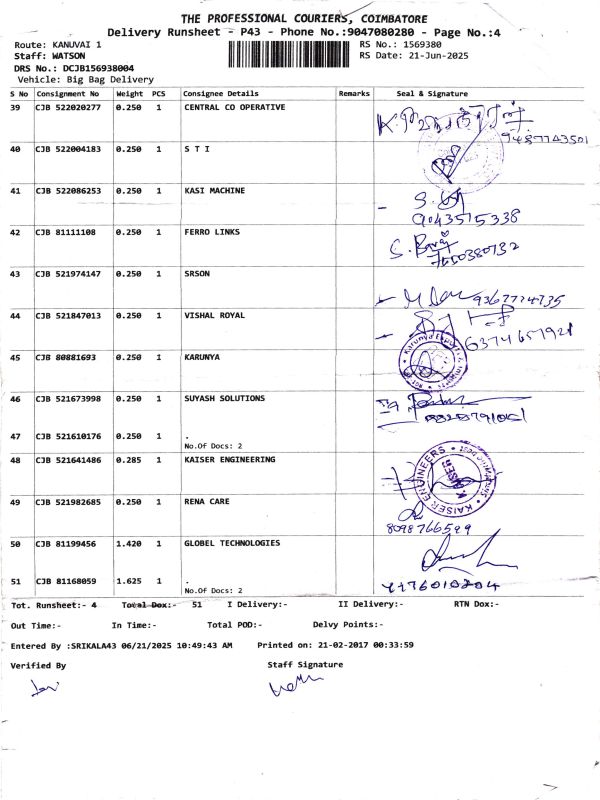 THE PROFESSIONAL COURIERS, COIMBATORE
Delivery Runsheet - P43 - Phone No.:9047080280 - Page No.:4
Route: KANUVAI 1 RS No.: 1569380
Staff: WATSON RS Date: 21-Jun-2025
DRS No.: DCJB156938004
Vehicle: Big Bag Delivery
S No Consignment No Weight PCS Consignee Details Remarks Seal & Signature
39 CJB 522020277 0.250 1 CENTRAL CO OPERATIVE
9487743501
40 CJB 522004183 0.250 1 S T I
41 CJB 522086253 0.250 1 KASI MACHINE
9043515338
42 CJB 81111108 0.250 1 FERRO LINKS
43 CJB 521974147 0.250 1 SRSON
9367774735
44 CJB 521847013 0.250 1 VISHAL ROYAL
6374657921
45 CJB 80881693 0.250 1 KARUNYA
46 CJB 521673998 0.250 1 SUYASH SOLUTIONS
47 CJB 521610176 0.250 1 .
No.Of Docs: 2
48 CJB 521641486 0.285 1 KAISER ENGINEERING
KAISER ENGINEERS
49 CJB 521982685 0.250 1 RENA CARE
8098766599
50 CJB 81199456 1.420 1 GLOBEL TECHNOLOGIES
51 CJB 81168059 1.625 1 .
No.Of Docs: 2
Tot. Runsheet:- 4 Total Dox:- 51 I Delivery:- II Delivery:- RTN Dox:-
Out Time:- In Time:- Total POD:- Delvy Points:-
Entered By :SRIKALA43 06/21/2025 10:49:43 AM Printed on: 21-02-2017 00:33:59
Verified By Staff Signature